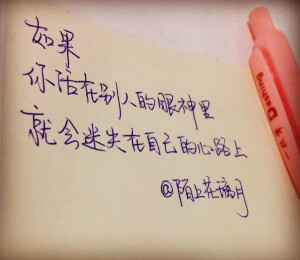 如果
你活在别人的眼神里
就会迷失在自己的心路上
@陌上花漓月
Dashing